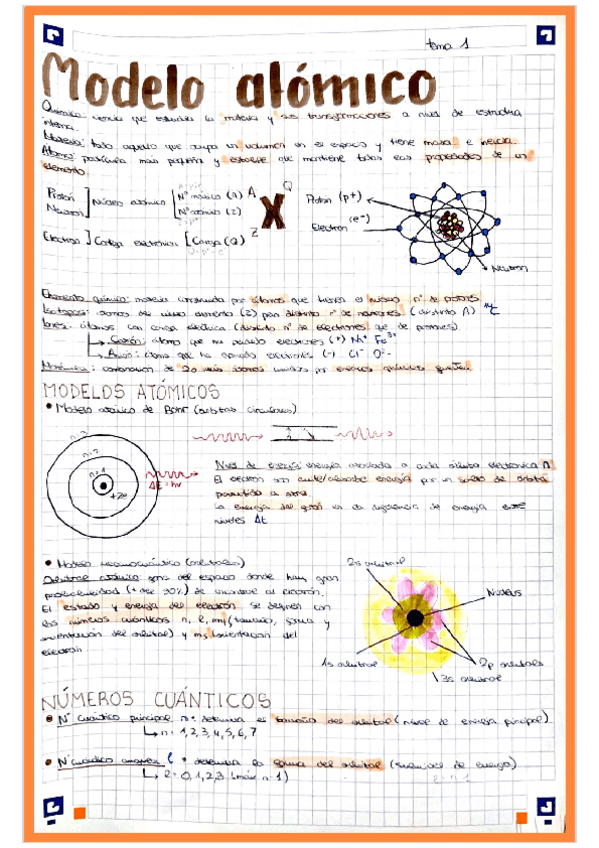 tema 1
Modelo atómico
Química: ciencia que estudia la materia y sus transformaciones a nivel de estructura
interna.
Materia: todo aquello que ocupa un volumen en el espacio y tiene masa e inercia.
Átomo: partícula más pequeña y estable que mantiene todas sus propiedades de un
elemento.
Protón
Neutrón
Núcleo atómico
Nº másico (A)
Nº atómico (Z)
Electrón
Corteza electrónica
Carga (Q)
A
Q
X
Z
Protón (p+)
Electrón (e-)
Neutron
Elemento químico: materia constituida por átomos que tienen el mismo nº de protones
Isótopos: átomos del mismo elemento (Z) pero distinto nº de neutrones (distinto A)
Iones: átomos con carga eléctrica (distinto nº de electrones que de protones)
Catión: átomo que ha perdido electrones (+) Na+ Fe3+
Anión: átomo que ha ganado electrones (-) Cl- O2-
Molécula: combinación de 2 o más átomos unidos por enlaces químicos
MODELOS ATÓMICOS
Modelo atómico de Bohr (órbitas circulares)
n=3
n=2
n=1
+Ze
ΔE=hν
Nivel de energía: energía asociada a cada órbita electrónica n
El electrón emite/absorbe energía por un salto de órbita
permitida a otra
La energía del fotón es la diferencia de energía entre
niveles ΔE
Modelo mecanocuántico (orbitales)
Orbital atómico: zona del espacio donde hay gran
probabilidad (+ del 90%) de encontrar al electrón.
El estado y energía del electrón se definen con
los números cuánticos n, l, ml (tamaño, forma y
orientación del orbital) y ms (orientación del
electrón
2s orbital
Nucleus
1s orbital
2p orbitals
3s orbital
NÚMEROS CUÁNTICOS
Nº Cuántico principal n: determina el tamaño del orbital (nivel de energía principal)
n = 1, 2, 3, 4, 5, 6, 7
Nº cuántico l: determina la forma del orbital (subnivel de energía)
l = 0, 1, 2, 3 (máx n-1)